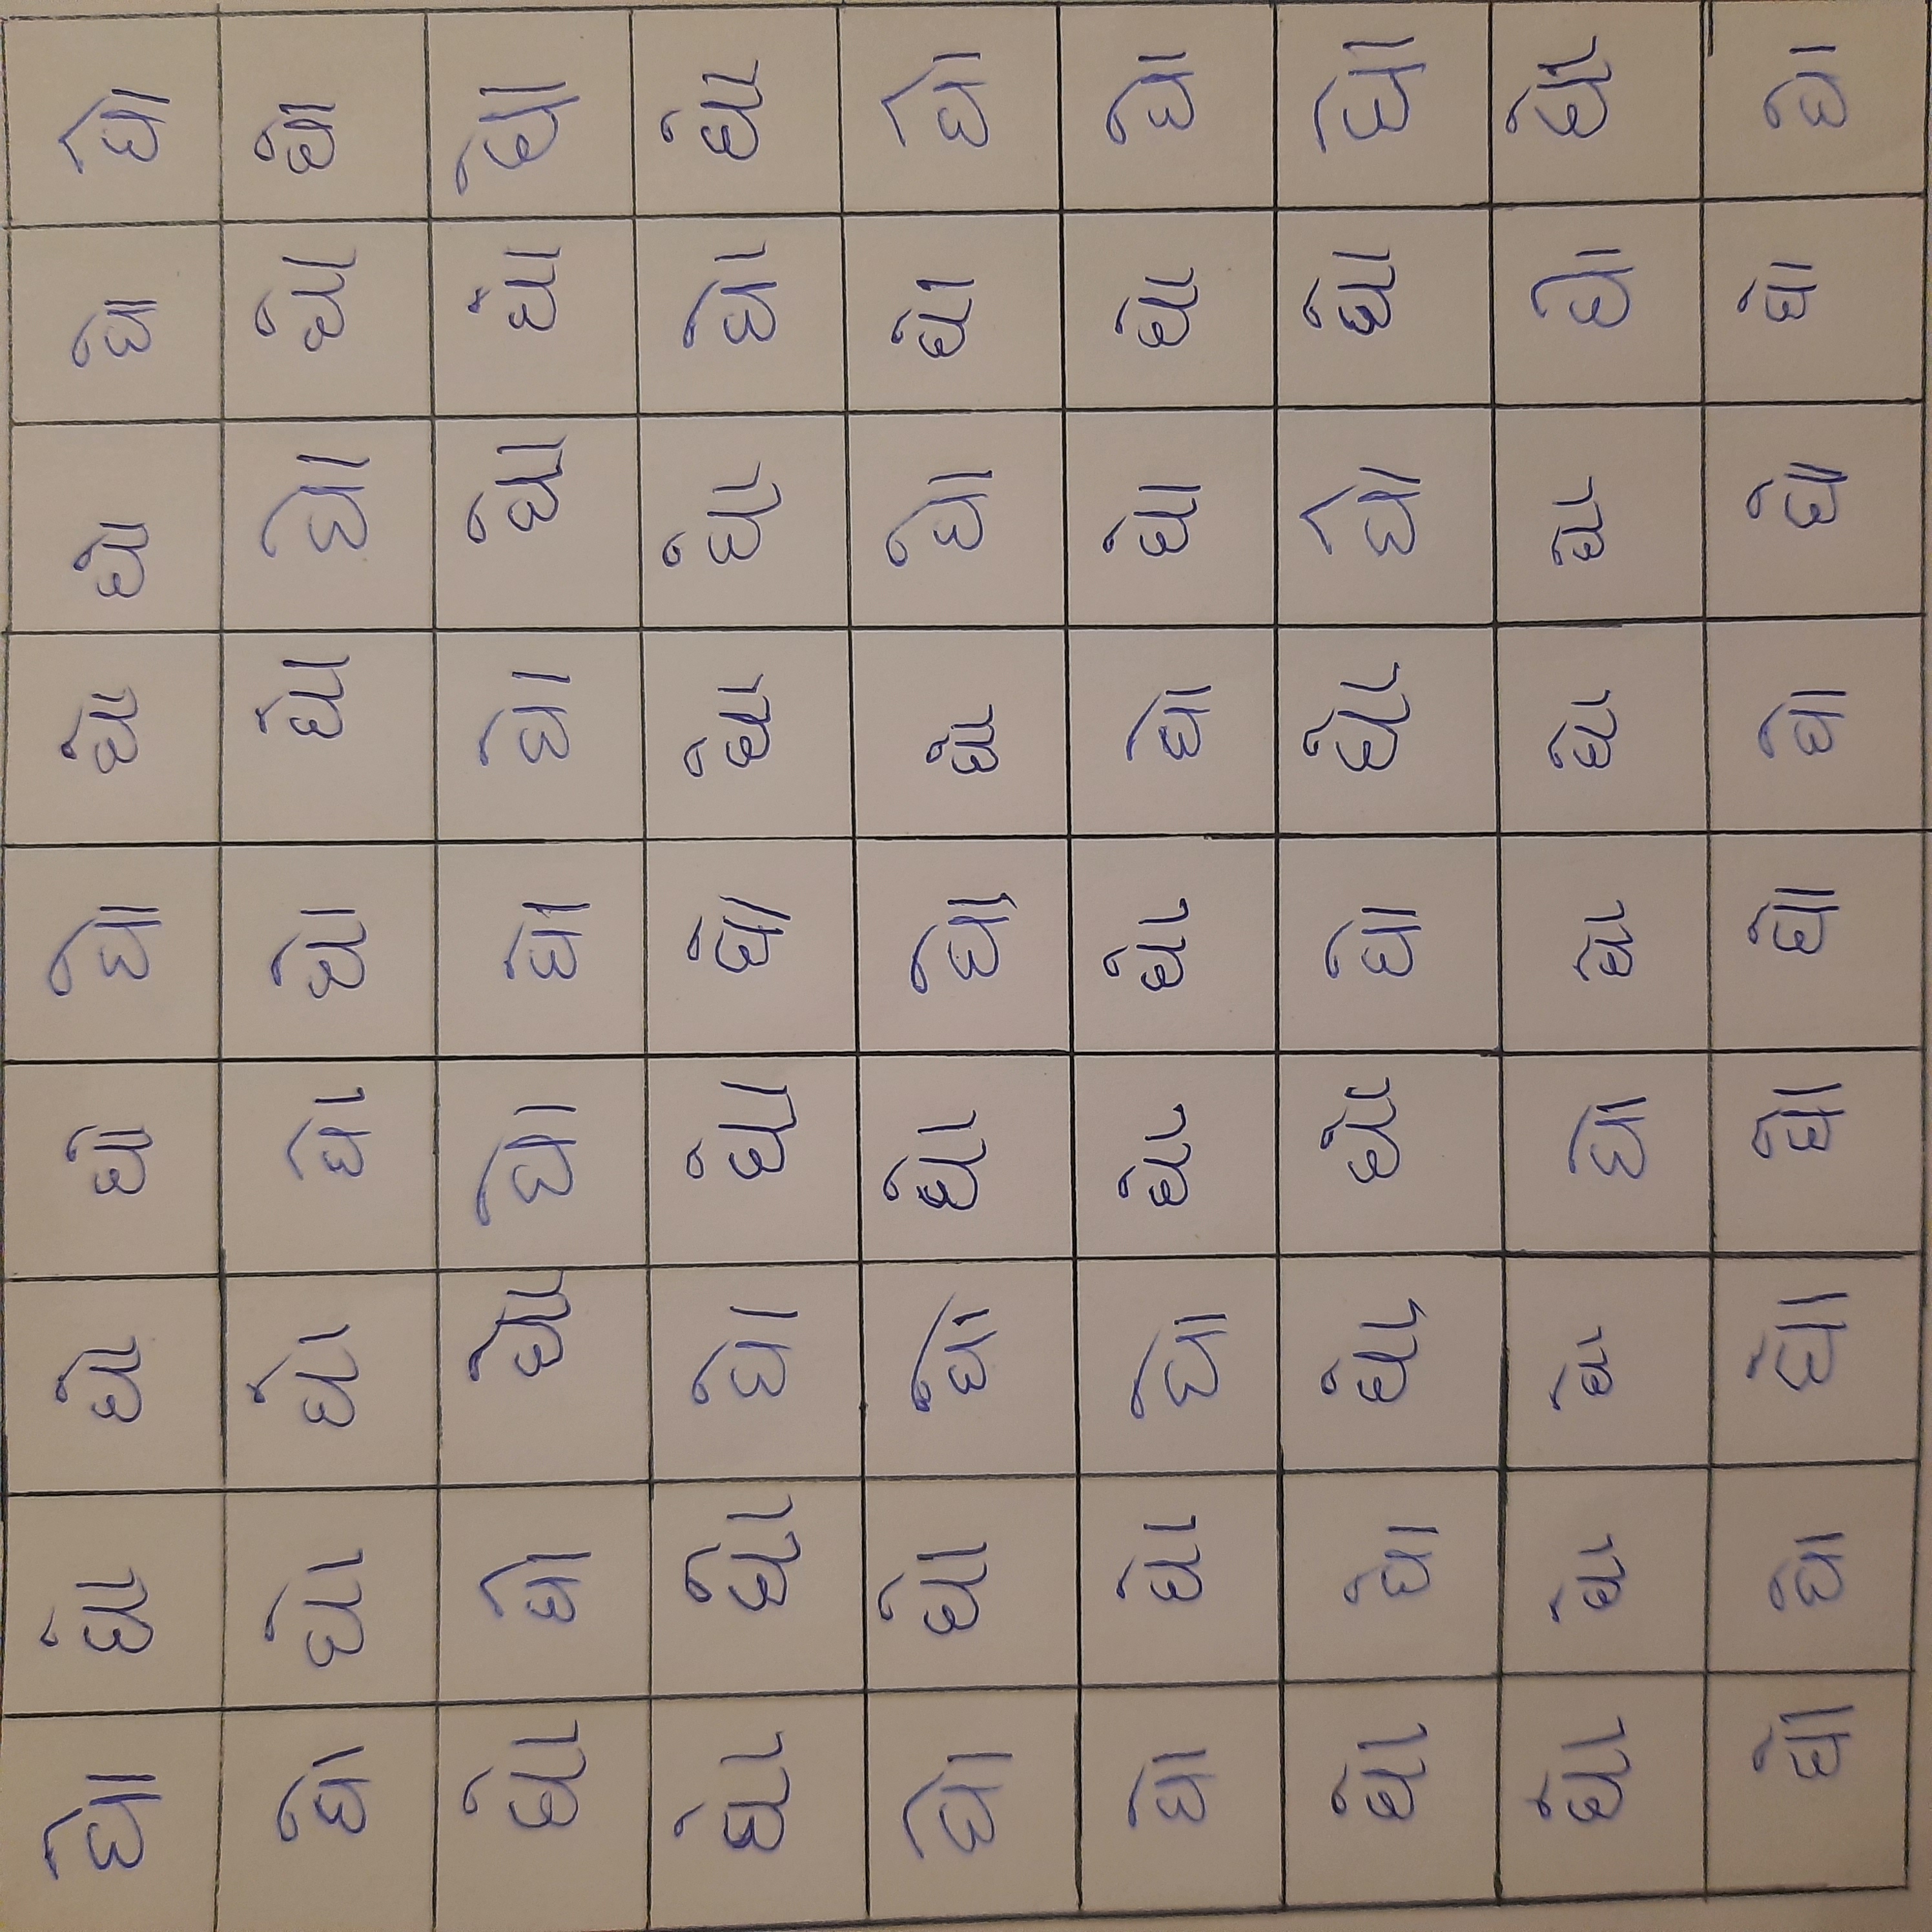 ઘો ઘો ઘો ઘો ઘો ઘો ઘો ઘો ઘો
ઘો ઘો ઘો ઘો ઘો ઘો ઘો ઘો ઘો
ઘો ઘો ઘો ઘો ઘો ઘો ઘો ઘો ઘો
ઘો ઘો ઘો ઘો ઘો ઘો ઘો ઘો ઘો
ઘો ઘો ઘો ઘો ઘો ઘો ઘો ઘો ઘો
ઘો ઘો ઘો ઘો ઘો ઘો ઘો ઘો ઘો
ઘો ઘો ઘો ઘો ઘો ઘો ઘો ઘો ઘો
ઘો ઘો ઘો ઘો ઘો ઘો ઘો ઘો ઘો
ઘો ઘો ઘો ઘો ઘો ઘો ઘો ઘો ઘો